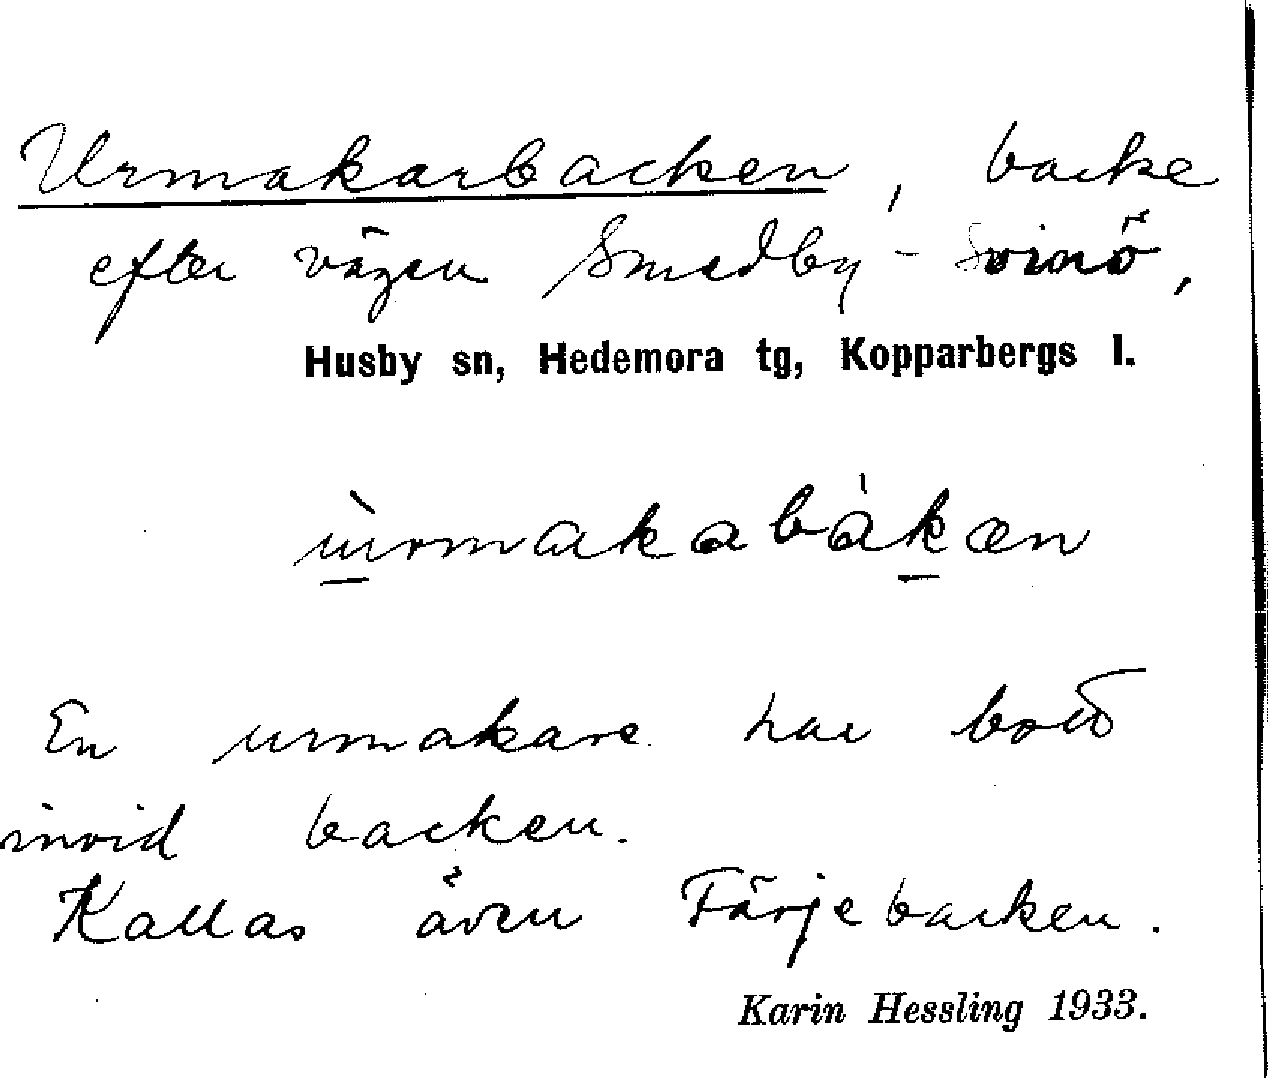 Urmakarbacken, backe
efter vägen Smedby - Svinö,
Husby sn, Hedemora tg, Kopparbergs l.
ùrmakabàkæn
En urmakare har bott
invid backen.
Kallas även Färjebacken.
Karin Hessling 1933.